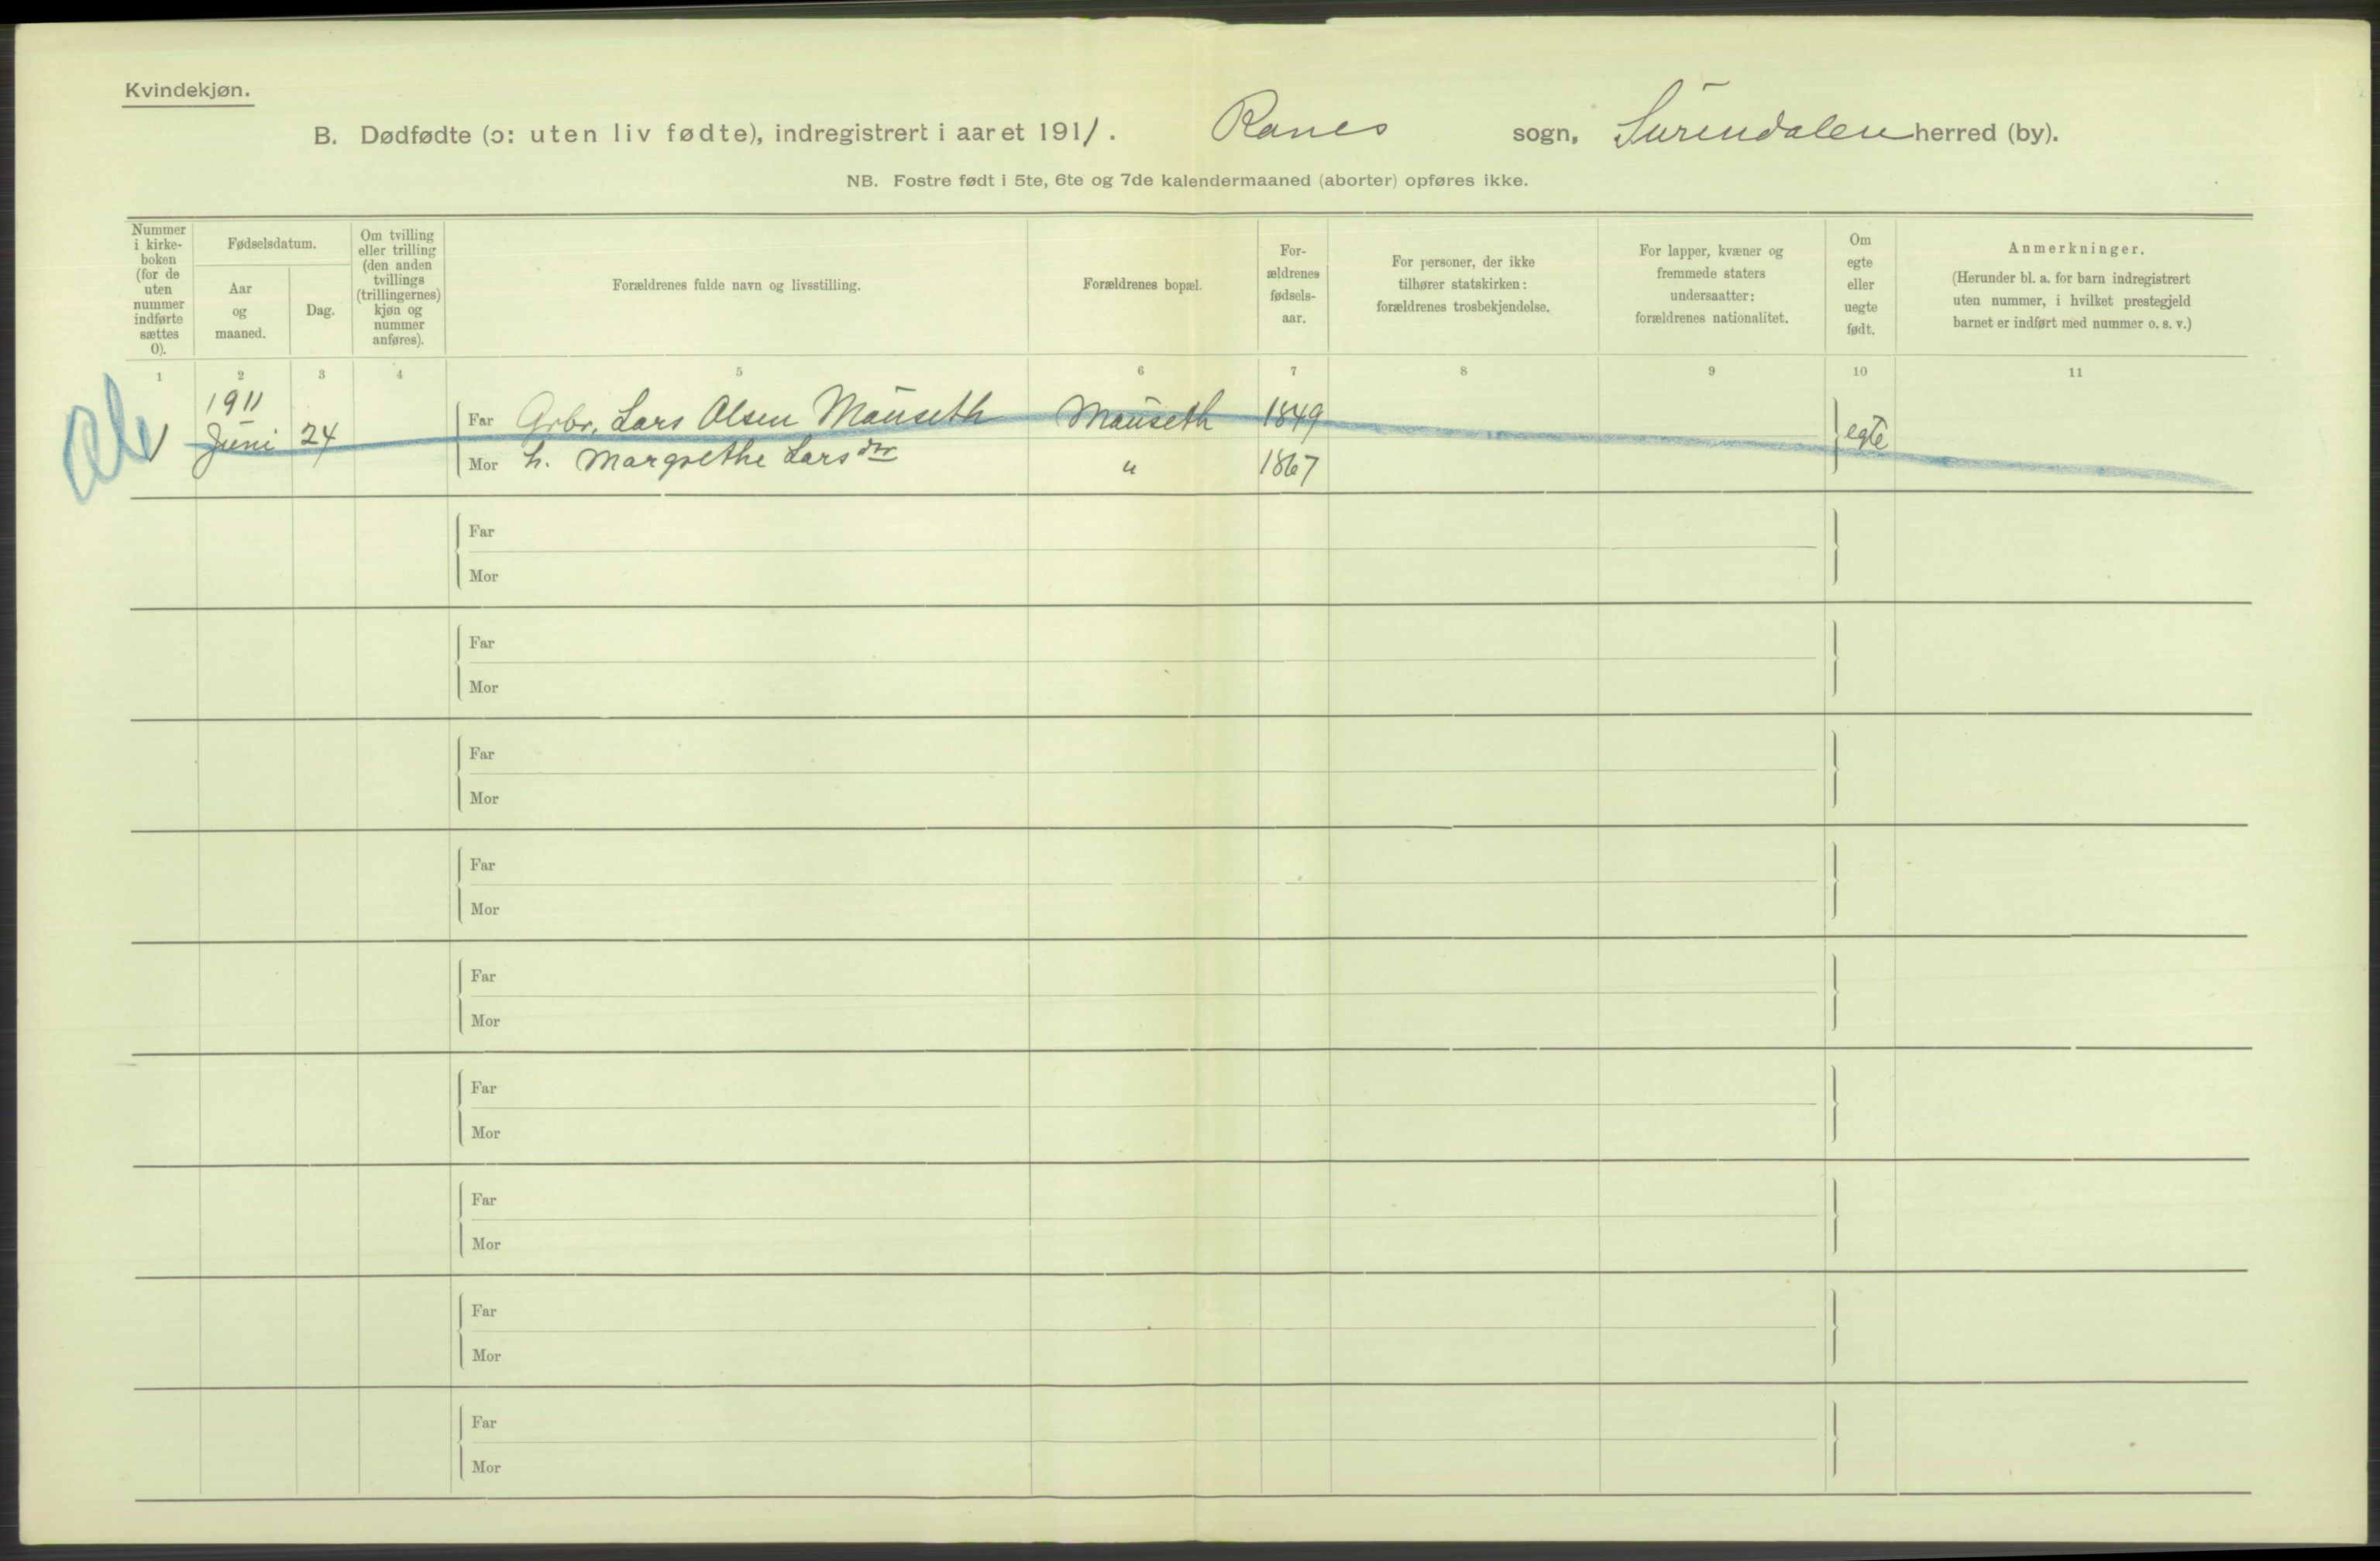 Kvindekjøn.
B. Dødfødte (ɔ: uten liv fødte), indregistrert i aaret 1911. Ranes sogn, Surendalen herred (by).
NB. Fostre født i 5te, 6te og 7de kalendermaaned (aborter) opføres ikke.
Nummer
i kirke-
boken
(for de
uten
nummer
indførte
sættes
0).
Fødselsdatum.
Aar
og
maaned.
Dag.
Om tvilling
eller trilling
(den anden
tvillings
(trillingernes)
kjøn og
nummer
anføres).
Forældrenes fulde navn og livsstilling.
Forældrenes bopæl.
For-
ældrenes
fødsels-
aar.
For personer, der ikke
tilhører statskirken:
forældrenes trosbekjendelse.
For lapper, kvæner og
fremmede staters
undersaatter:
forældrenes nationalitet.
Om
egte
eller
uegte
født.
Anmerkninger.
(Herunder bl. a. for barn indregistrert
uten nummer, i hvilket prestegjeld
barnet er indført med nummer o. s. v.)
1 2 3 4 5 6 7 8 9 10 11
1911
1 Juni 24 Far Grbr. Lars Olsen Mauseth Mauseth 1849 egte
Mor h. Margrethe Larsdtr " 1867
Far
Mor
Far
Mor
Far
Mor
Far
Mor
Far
Mor
Far
Mor
Far
Mor
Far
Mor
Far
Mor